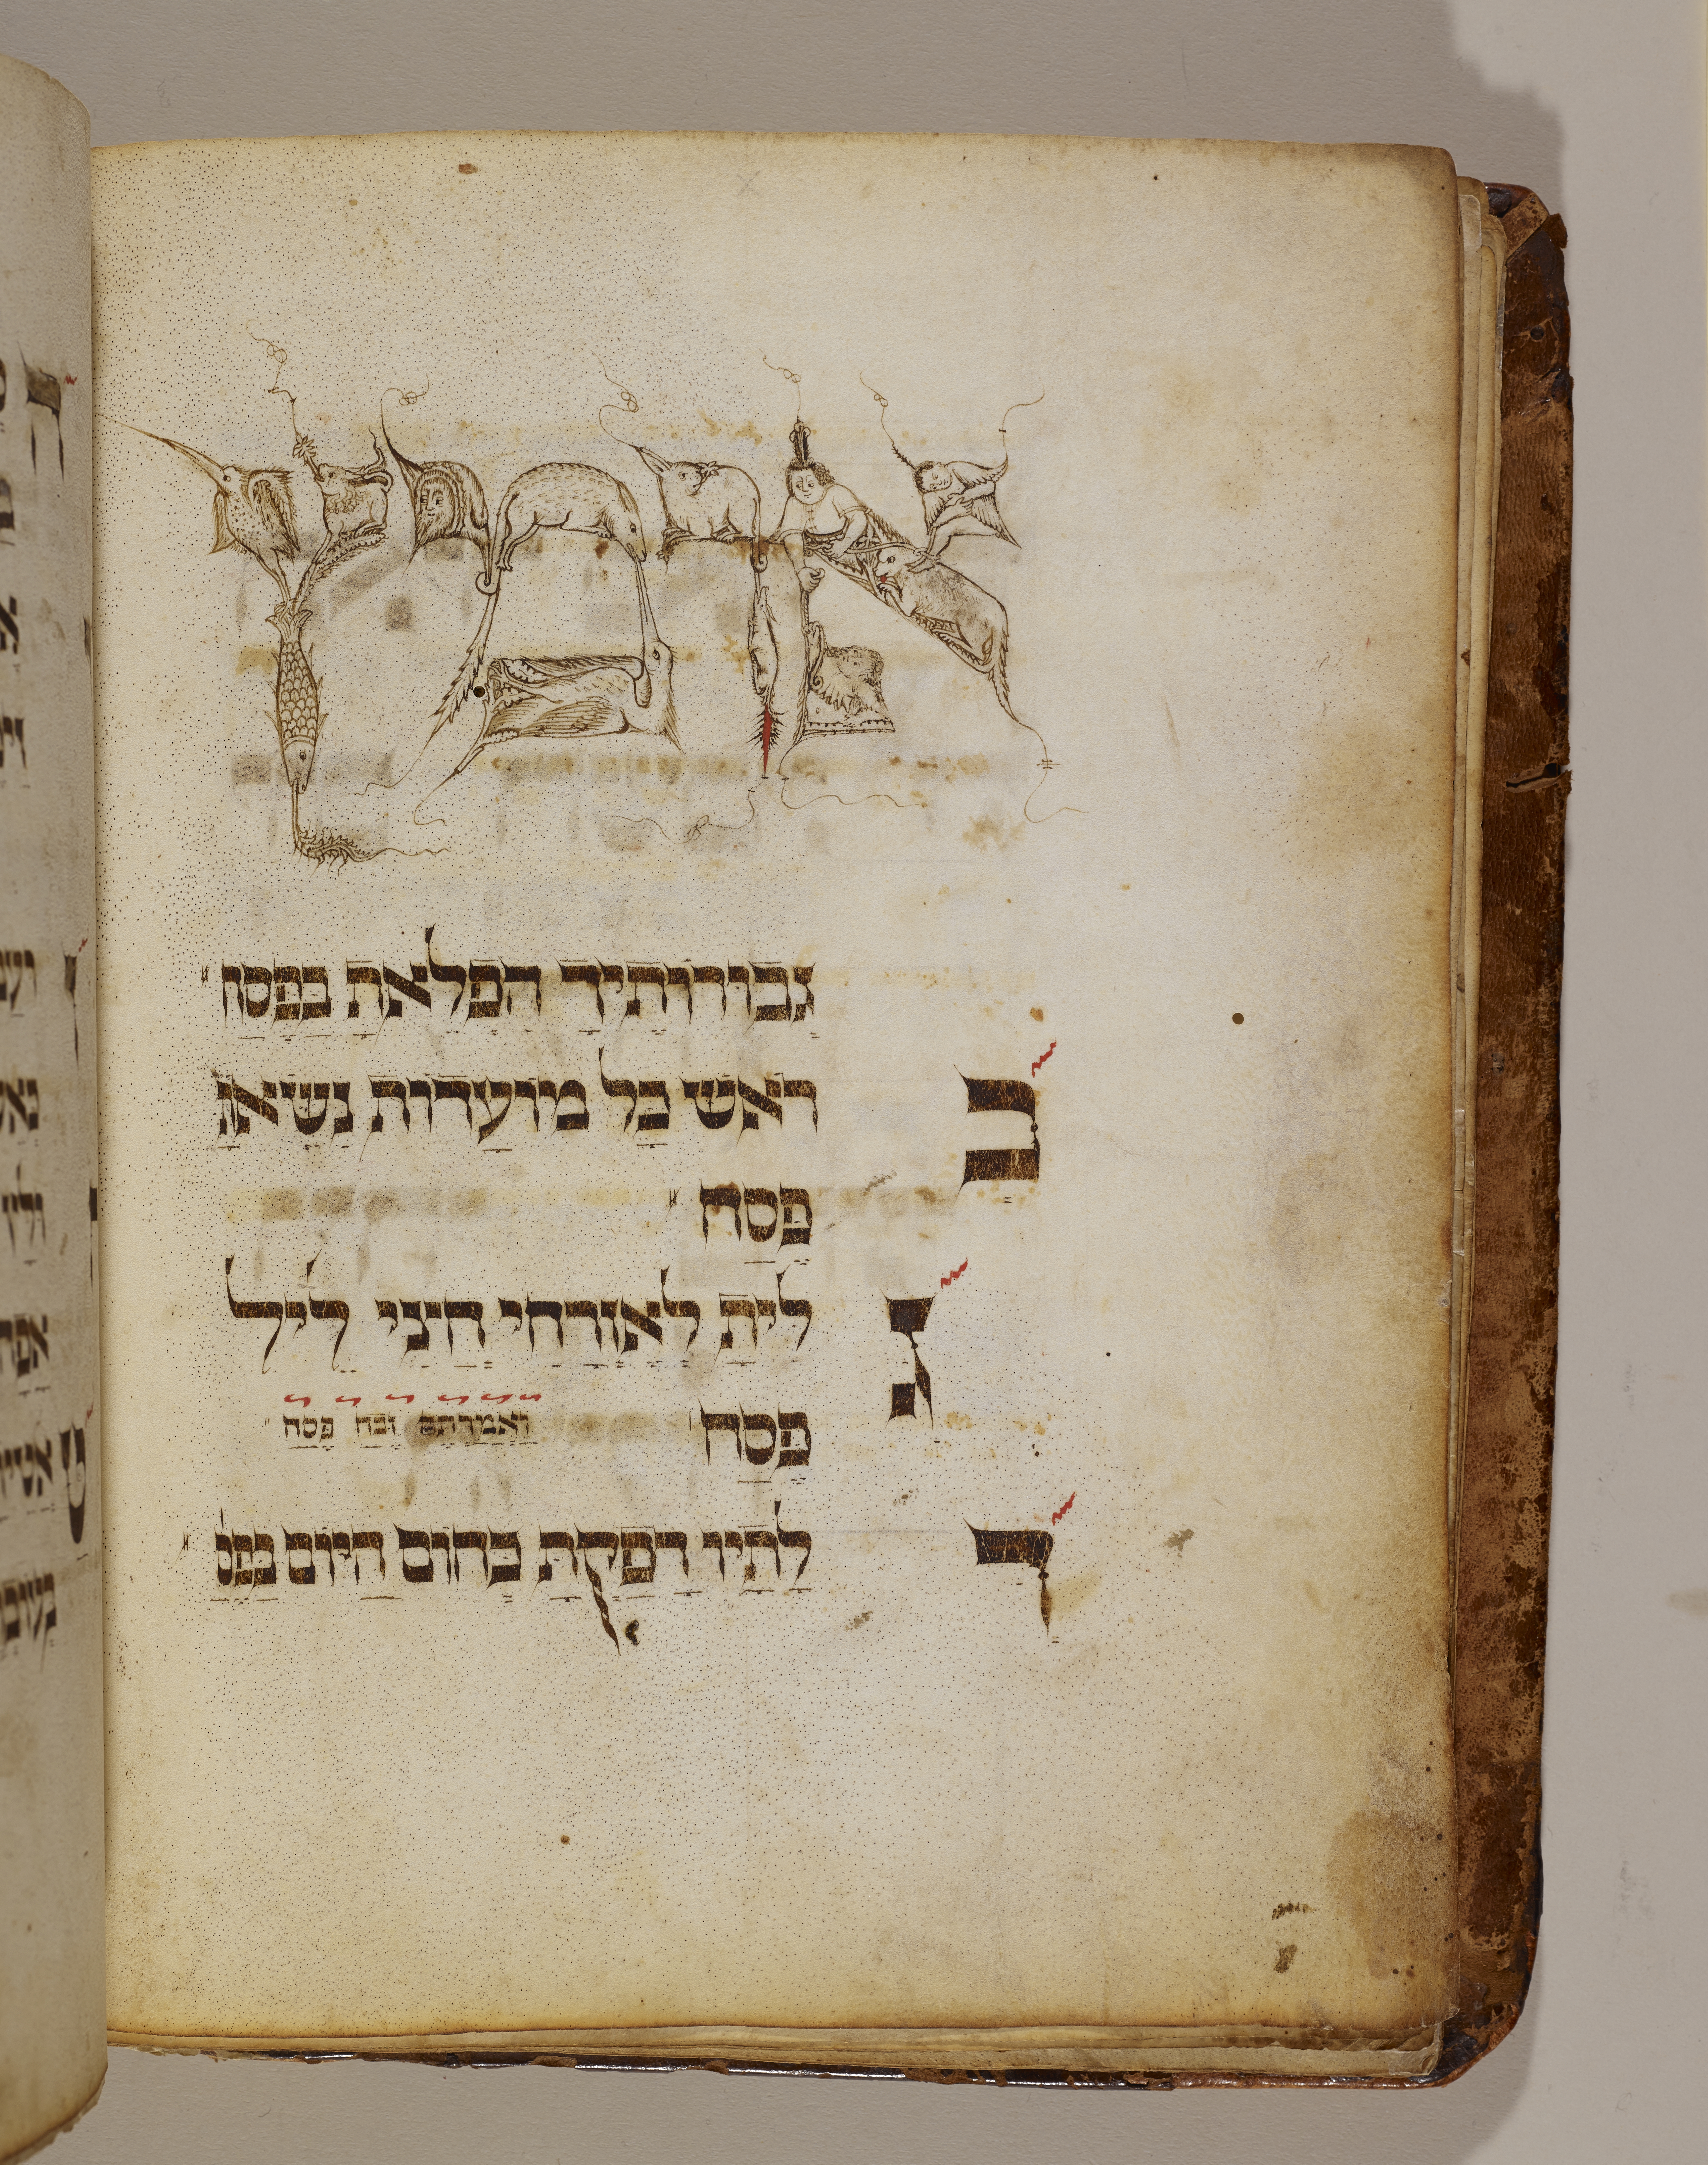 אומץ
גבורותיך הפלאת בפסח
בראש כל מועדות נשאת
פסח
גלית לאורחי חצי ליל
פסח ואמרתם זבח פסח
דלתיו דפקת כחום היום בפס